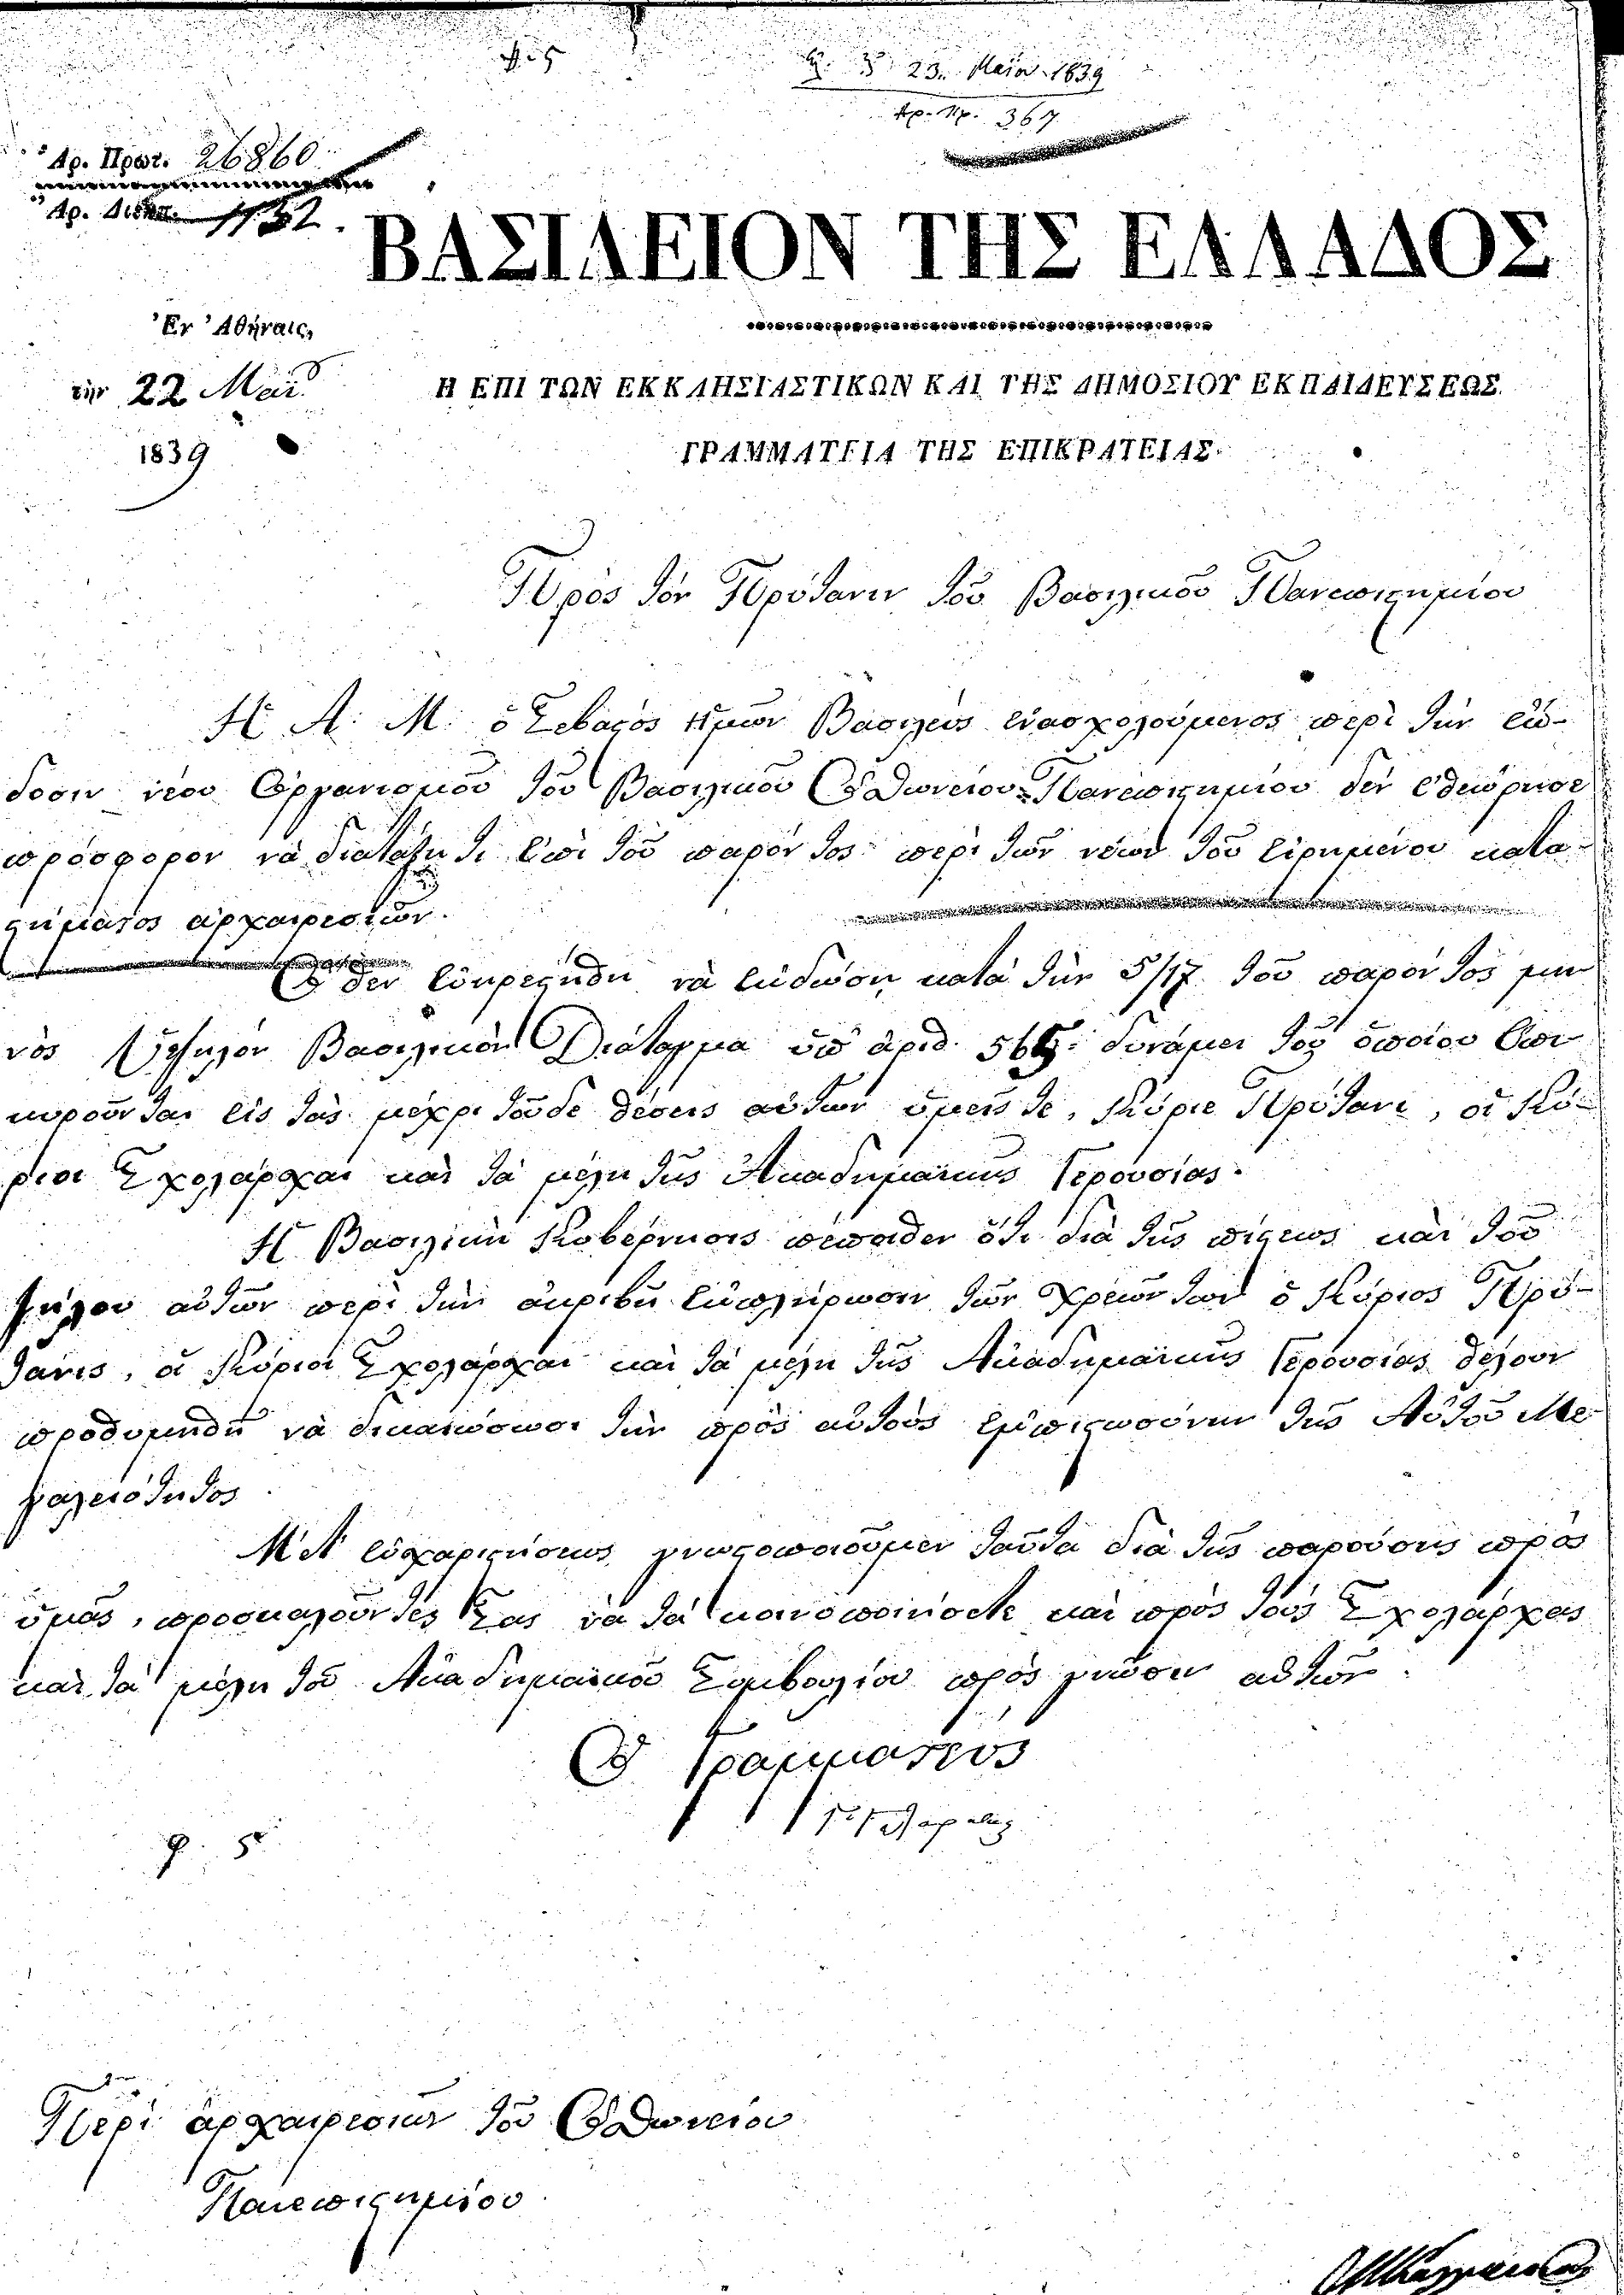 φ. 5
23. Μαΐου 1839
Αρ. Πρ. 367
Ἀρ. Πρωτ. 26860
Ἀρ. Διεκπ. 1132.
ΒΑΣΙΛΕΙΟΝ ΤΗΣ ΕΛΛΑΔΟΣ
Ἐν Ἀθήναις,
τὴν 22 Μαΐου
1839
Η ΕΠΙ ΤΩΝ ΕΚΚΛΗΣΙΑΣΤΙΚΩΝ ΚΑΙ ΤΗΣ ΔΗΜΟΣΙΟΥ ΕΚΠΑΙΔΕΥΣΕΩΣ
ΓΡΑΜΜΑΤΕΙΑ ΤΗΣ ΕΠΙΚΡΑΤΕΙΑΣ.
Πρὸς τὸν Πρύτανιν τοῦ Βασιλικοῦ Πανεπιστημίου
Η Α: Μ: ὁ Σεβαστὸς ἡμῶν Βασιλεὺς ἐνασχολούμενος περὶ τὴν ἔκ-
δοσιν νέου Ὀργανισμοῦ τοῦ Βασιλικοῦ Ὀθωνείου Πανεπιστημίου δὲν ἐθεώρησε
πρόσφορον νὰ διατάξῃ τι ἐπὶ τοῦ παρόντος περὶ τῶν νέων τοῦ εἰρημένου κατα-
στήματος ἀρχαιρεσιῶν.
Ὅθεν εὐηρεστήθη νὰ ἐκδώσῃ κατὰ τὴν 5/17 τοῦ παρόντος μη-
νὸς Ὑψηλὸν Βασιλικὸν Διάταγμα ὑπ' ἀριθ. δυνάμει τοῦ ὁποίου ἐπι-
κυροῦνται εἰς τὰς μέχρι τοῦδε θέσεις αὐτῶν ὑμεῖς τε, Κύριε Πρύτανι, οἱ Κύ-
ριοι Σχολάρχαι καὶ τὰ μέλη τῆς Ἀκαδημαϊκῆς Γερουσίας.
Η Βασιλικὴ Κυβέρνησις πέποιθεν ὅτι διὰ τῆς πίστεως καὶ τοῦ
ζήλου αὐτῶν περὶ τὴν ἀκριβῆ ἐκπλήρωσιν τῶν χρεῶν των ὁ Κύριος Πρύ-
τανις, οἱ Κύριοι Σχολάρχαι καὶ τὰ μέλη τῆς Ἀκαδημαϊκῆς Γερουσίας θέλουν
προθυμηθῆ νὰ δικαιώσωσι τὴν πρὸς αὐτοὺς ἐμπιστοσύνην τῆς Αὐτοῦ Με-
γαλειότητος
Μετ' εὐχαριστήσεως γνωστοποιοῦμεν ταῦτα διὰ τῆς παρούσης πρὸς
ὑμᾶς, προσκαλοῦντές Σας νὰ τὰ κοινοποιήσετε καὶ πρὸς τοὺς Σχολάρχας
καὶ τὰ μέλη τοῦ Ἀκαδημαϊκοῦ Συμβουλίου πρὸς γνῶσιν αὐτῶν.
Ὁ Γραμματεὺς
φ. 5
Περὶ ἀρχαιρεσιῶν τοῦ Ὀθωνείου
Πανεπιστημίου